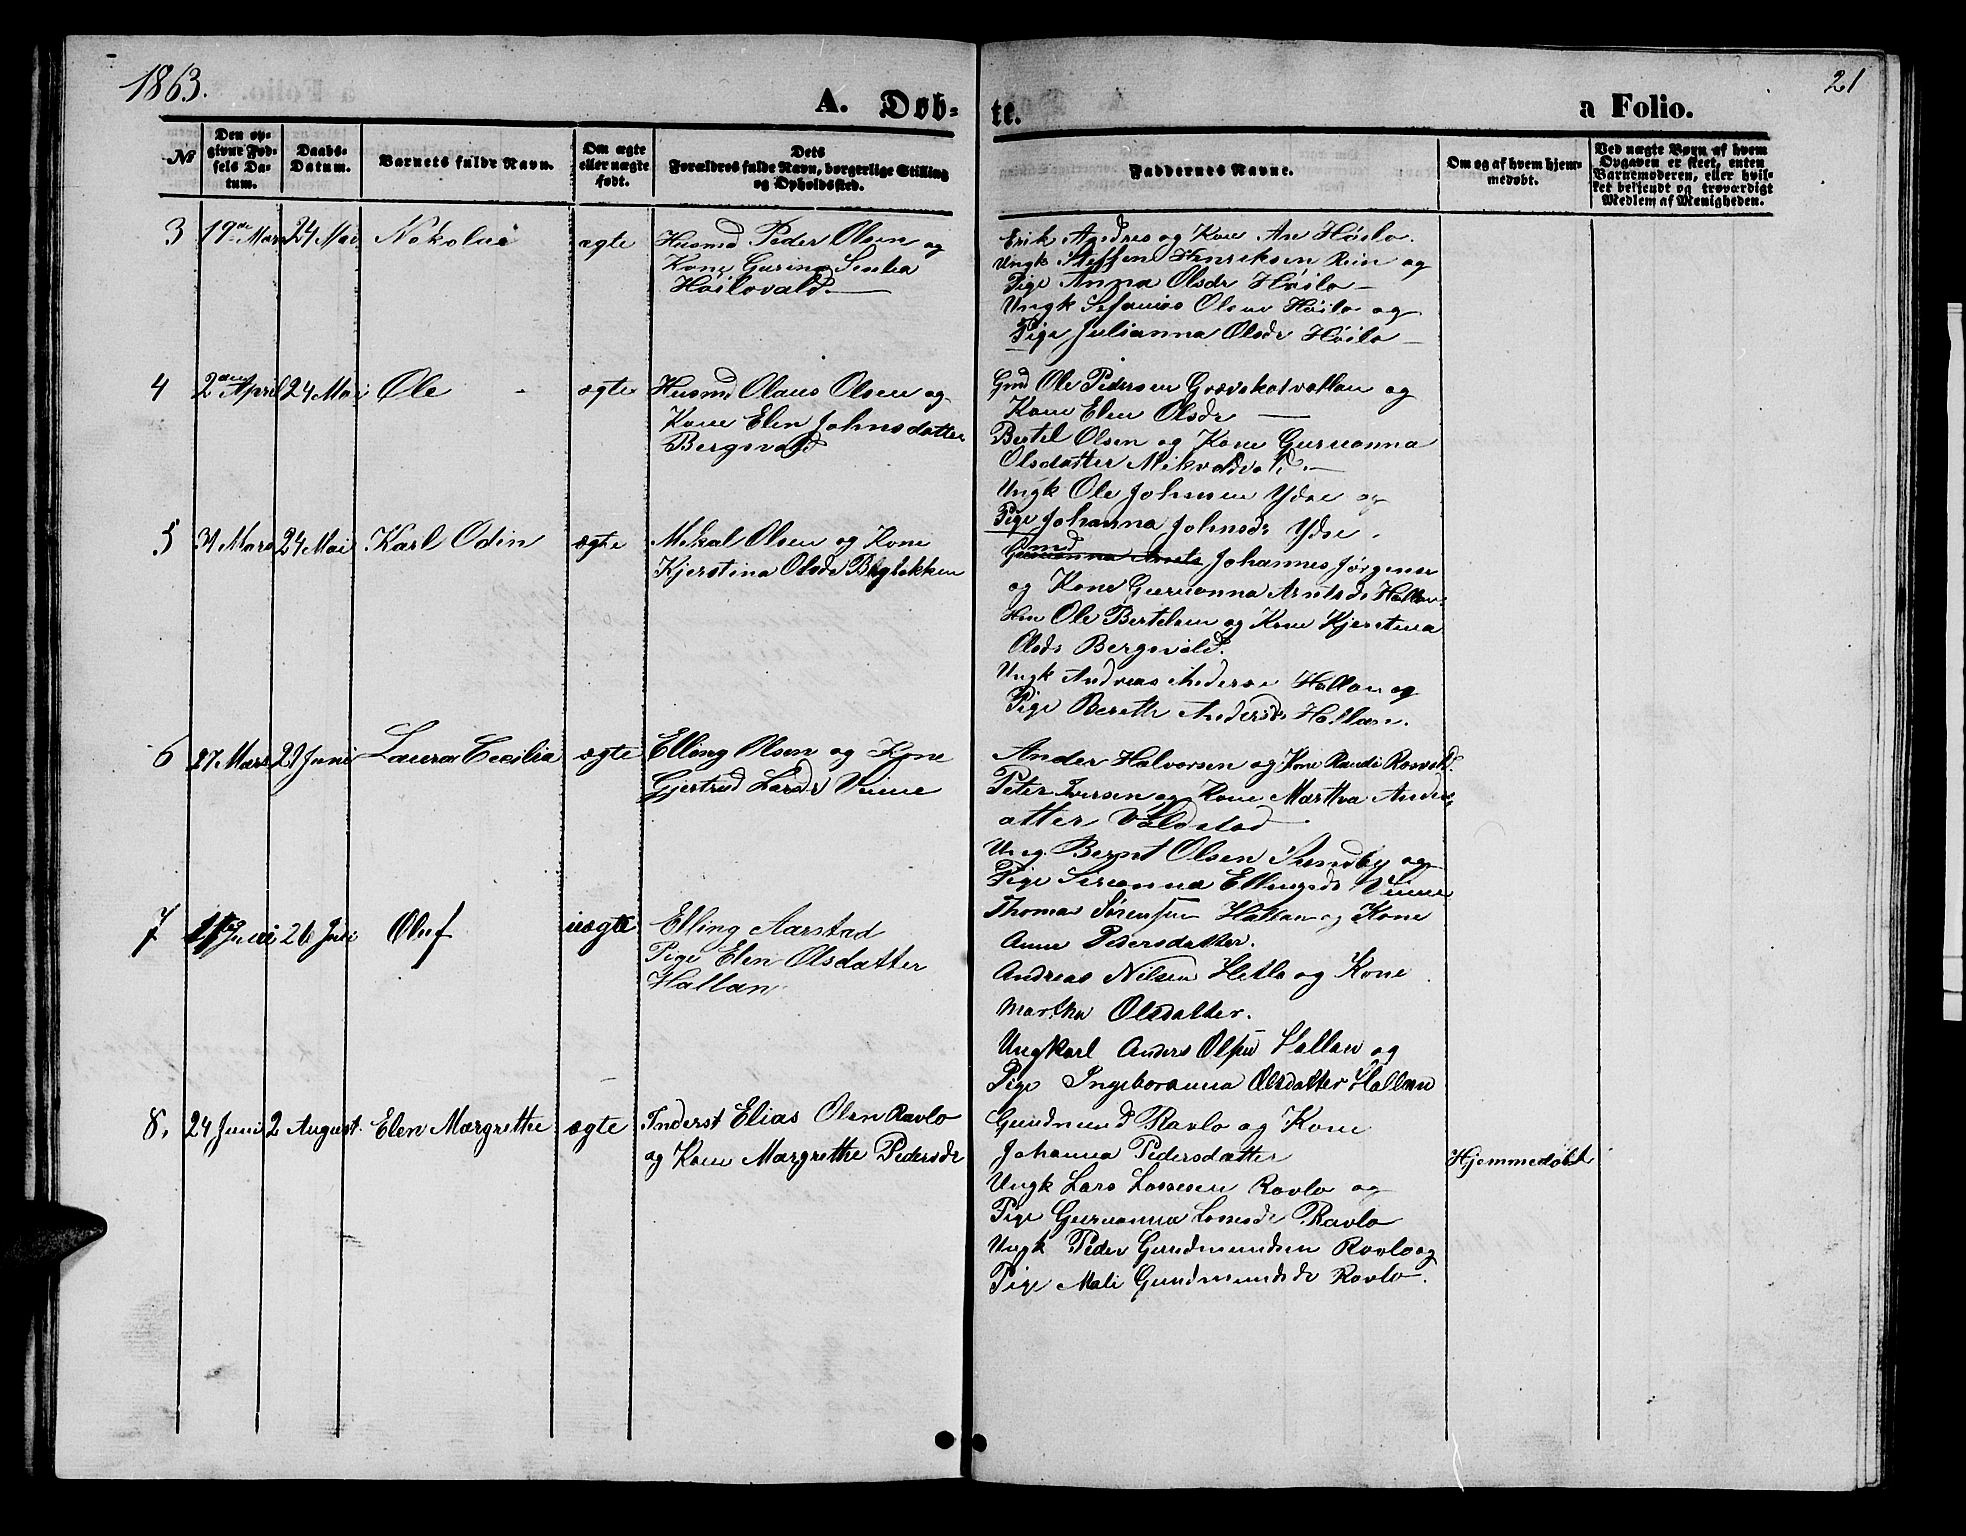 1863.
21
A. Døb-
te.
a Folio.
No
Den op-
givne Fød-
sels Da-
tum.
Daabs-
Datum.
Barnets fulde Navn.
Om ægte
eller uægte
født.
Dets
Forældres fulde Navn, borgerlige Stilling
og Opholdssted.
Faddernes Navne.
Om og af hvem hjem-
medøbt.
Ved uægte Børn af hvem
Opgaven er skeet, enten
Barnemoderen, eller hvil-
ket bekjendt og troværdigt
Medlem af Menigheden.
3 19 Mars 24 Mai Nokolai ægte
Husmd Peder Olsen og
Kone Gurina
Høilovald
Erik Andres og Kone An Høilo.
Ungk Steffen Henriksen Rein og
Pige Anna Olsdr Høilo
Ungk Olsen Høilo og
Pige Julianna Olsdr Høilo
4 2den April 24 Mai Ole ægte
Husmd Olaus Olsen og
Kone Elen Johnsdatter
Bergsvald
Gmd Ole Pedersen og
Kone Elen Olsdr
Bertel Olsen og Kone Guruanna
Olsdatter
Ungk Ole Johnsen Ydse og
Pige Johanna Johnsdr Ydse.
5 31 Mars 24 Mai Karl Odin ægte
Mekal Olsen og Kone
Kjerstina Olsdr
Gmd Johannes Jørgense
og Kone Guruanna Arntsdr Hallan
Hm Ole Bertelsen og Kone Kjerstina
Olsdr Bergsvald.
Ungk Andreas Anderse Hallan og
Pige Bereth Andersdr Hallan.
6 27 Mars 21 Juni Laura Cecilia ægte
Elling Olsen og Kone
Gjertrud Larsdr Vinne
Ander Halvorsen og Kone Randi
Peter Iversen og Kone Martha Anders
atter Voldstad
Ung. Bernt Olsen Sundby og
Pige Sirianna Ellingsdr Vinne
7 Juni 26 Juli Oluf uægte
Elling Aarstad
Pige Elen Olsdatter
Hallan
Thomas Sørensen Hallan og Kone
Anne Pedersdatter.
Andreas Nilsen Hetlo og Kone
Martha Olsdatter.
Ungkarl Anders Olsen Hallan og
Pige Ingeboranna Olsdatter Hallan
8. 24 Juni 2 August. Elen Margrethe ægte
Inderst Elias Olsen Ravlo
og Kone Margrethe Pedersdr
Gundmund Ravlo og Kone
Johanna Pedersdatter
Hjemmedøbt
Ungk Lars Ravlo og
Pige Guruanna Ravlo
Ungk Peder Gundmundsen Ravlo og
Pige Mali Gundmundsdr Ravlo.